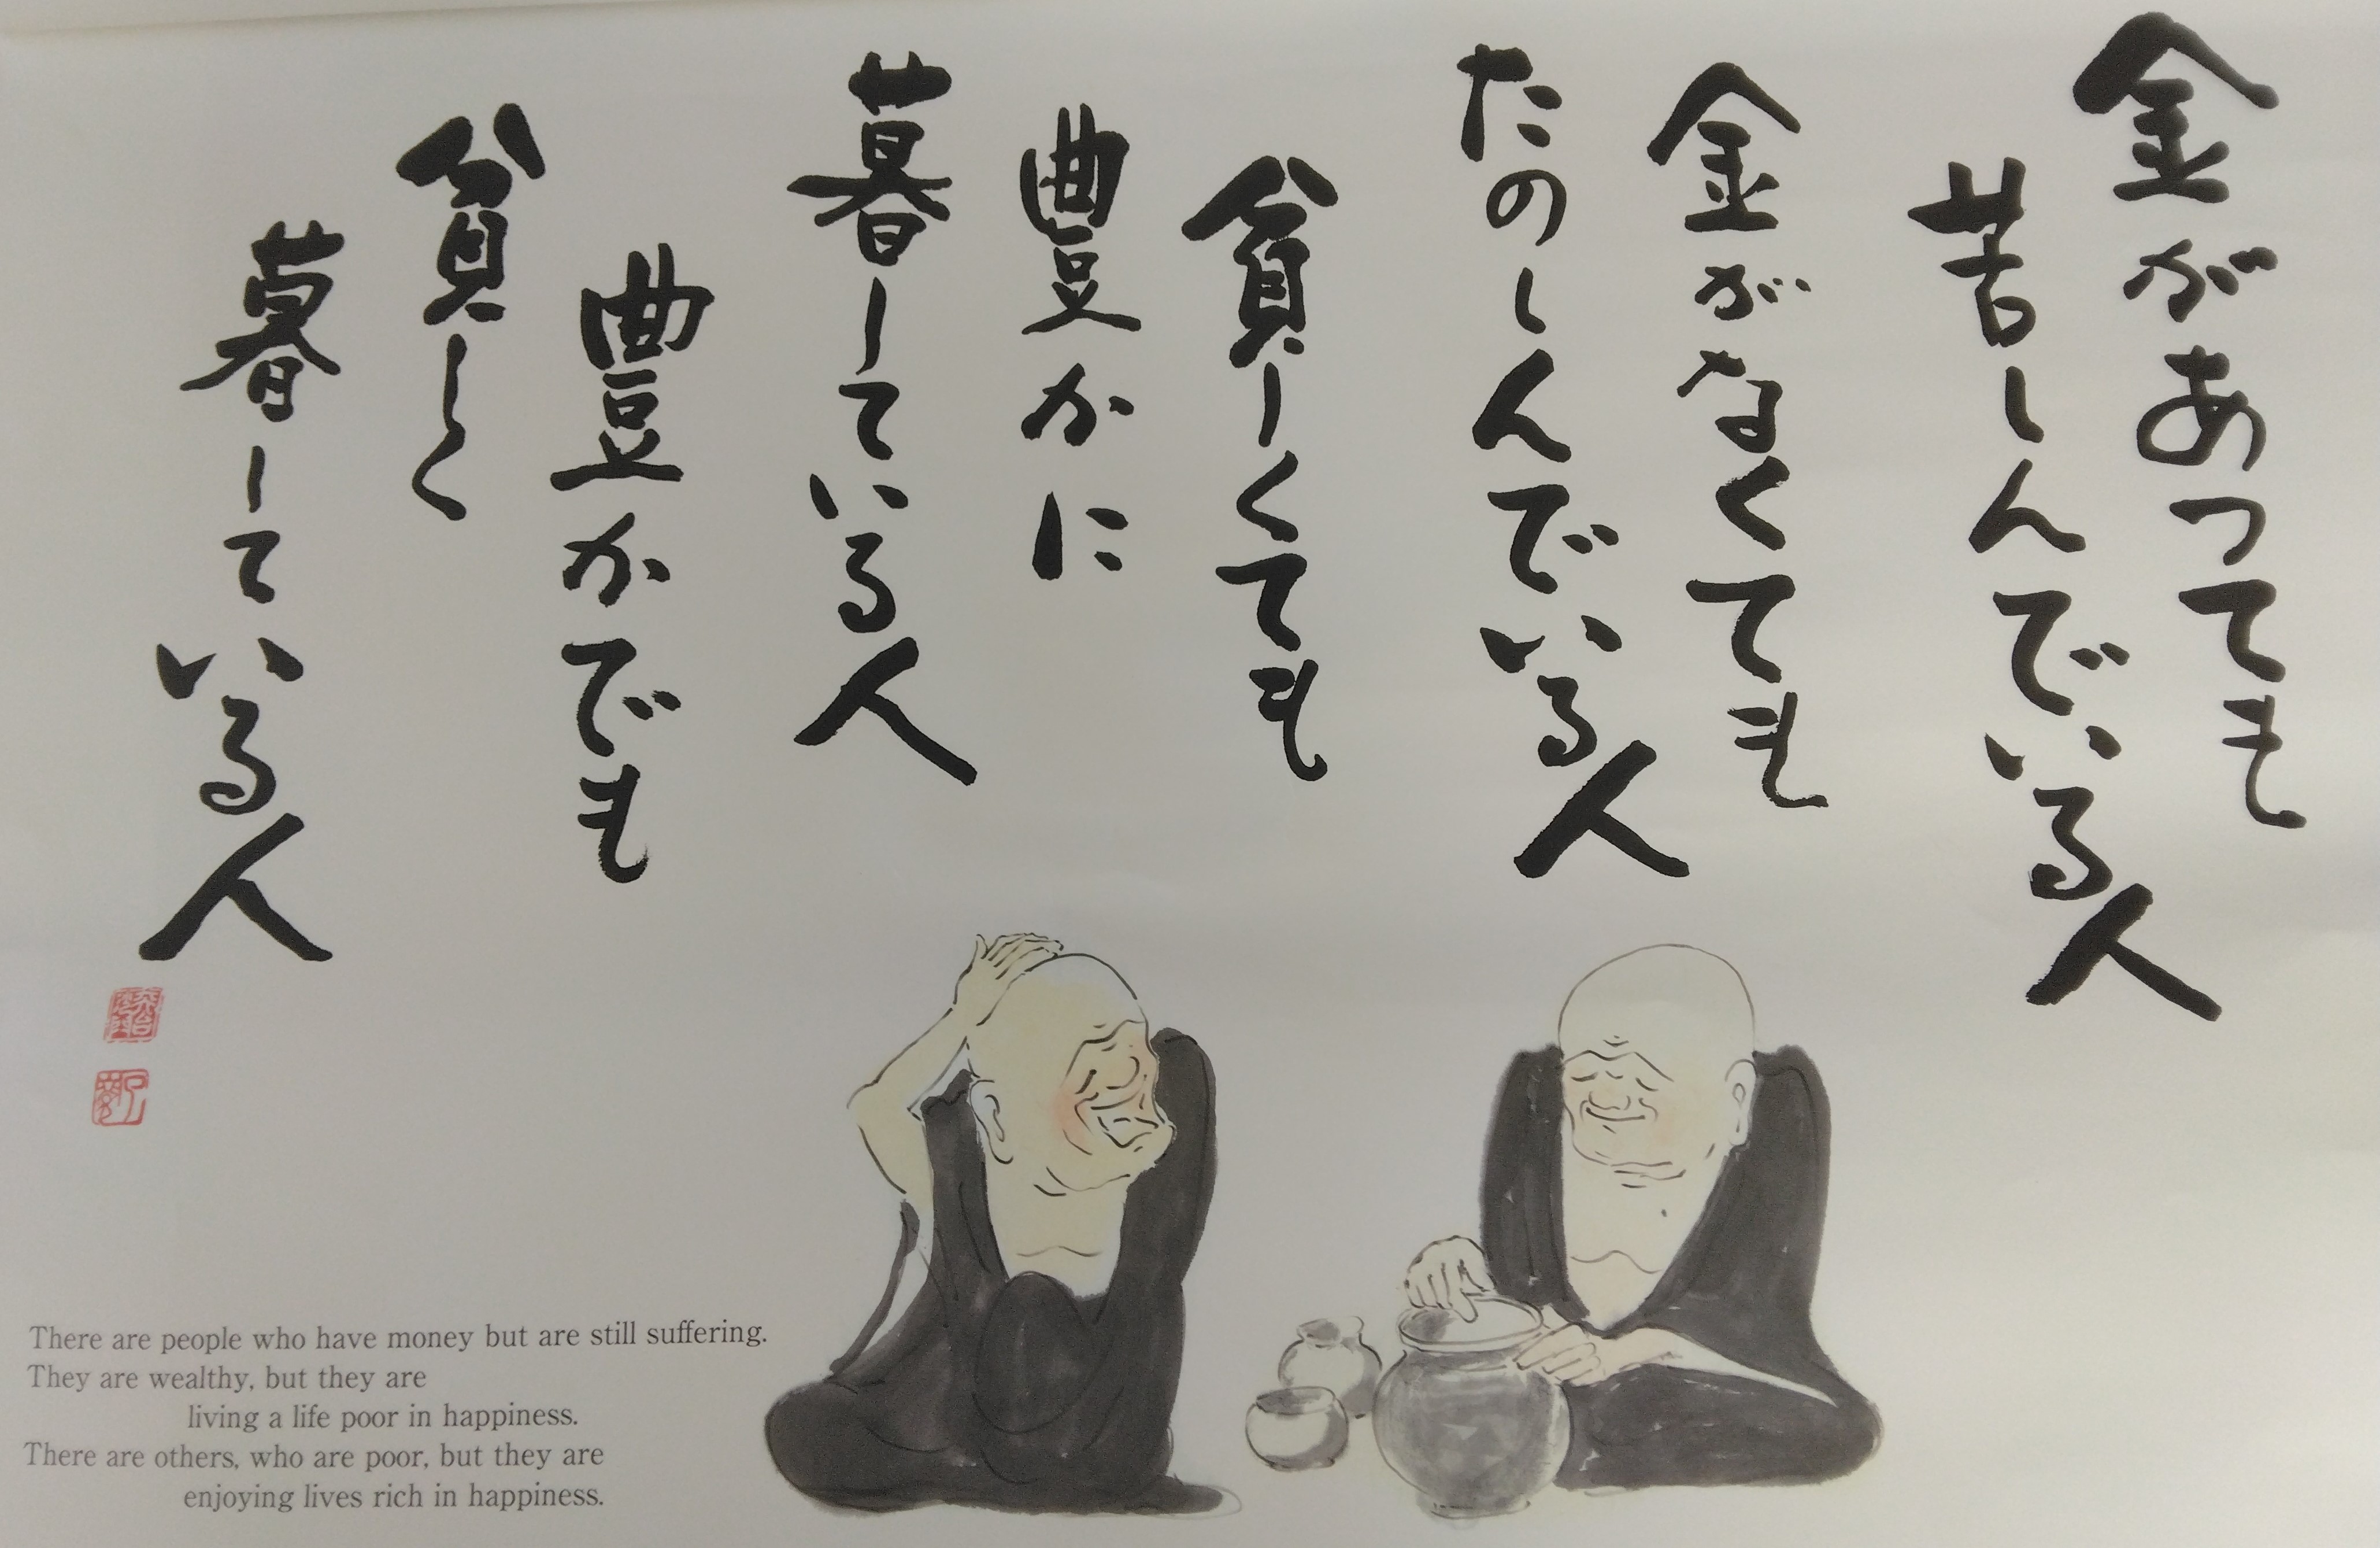 金があっても
苦しんでいる人
金がなくても
たのしんでいる人
貧しくても
豊かに
暮している人
豊かでも
貧しく
暮している人
There are people who have money but are still suffering.
They are wealthy, but they are
living a life poor in happiness.
There are others, who are poor, but they are
enjoying lives rich in happiness.